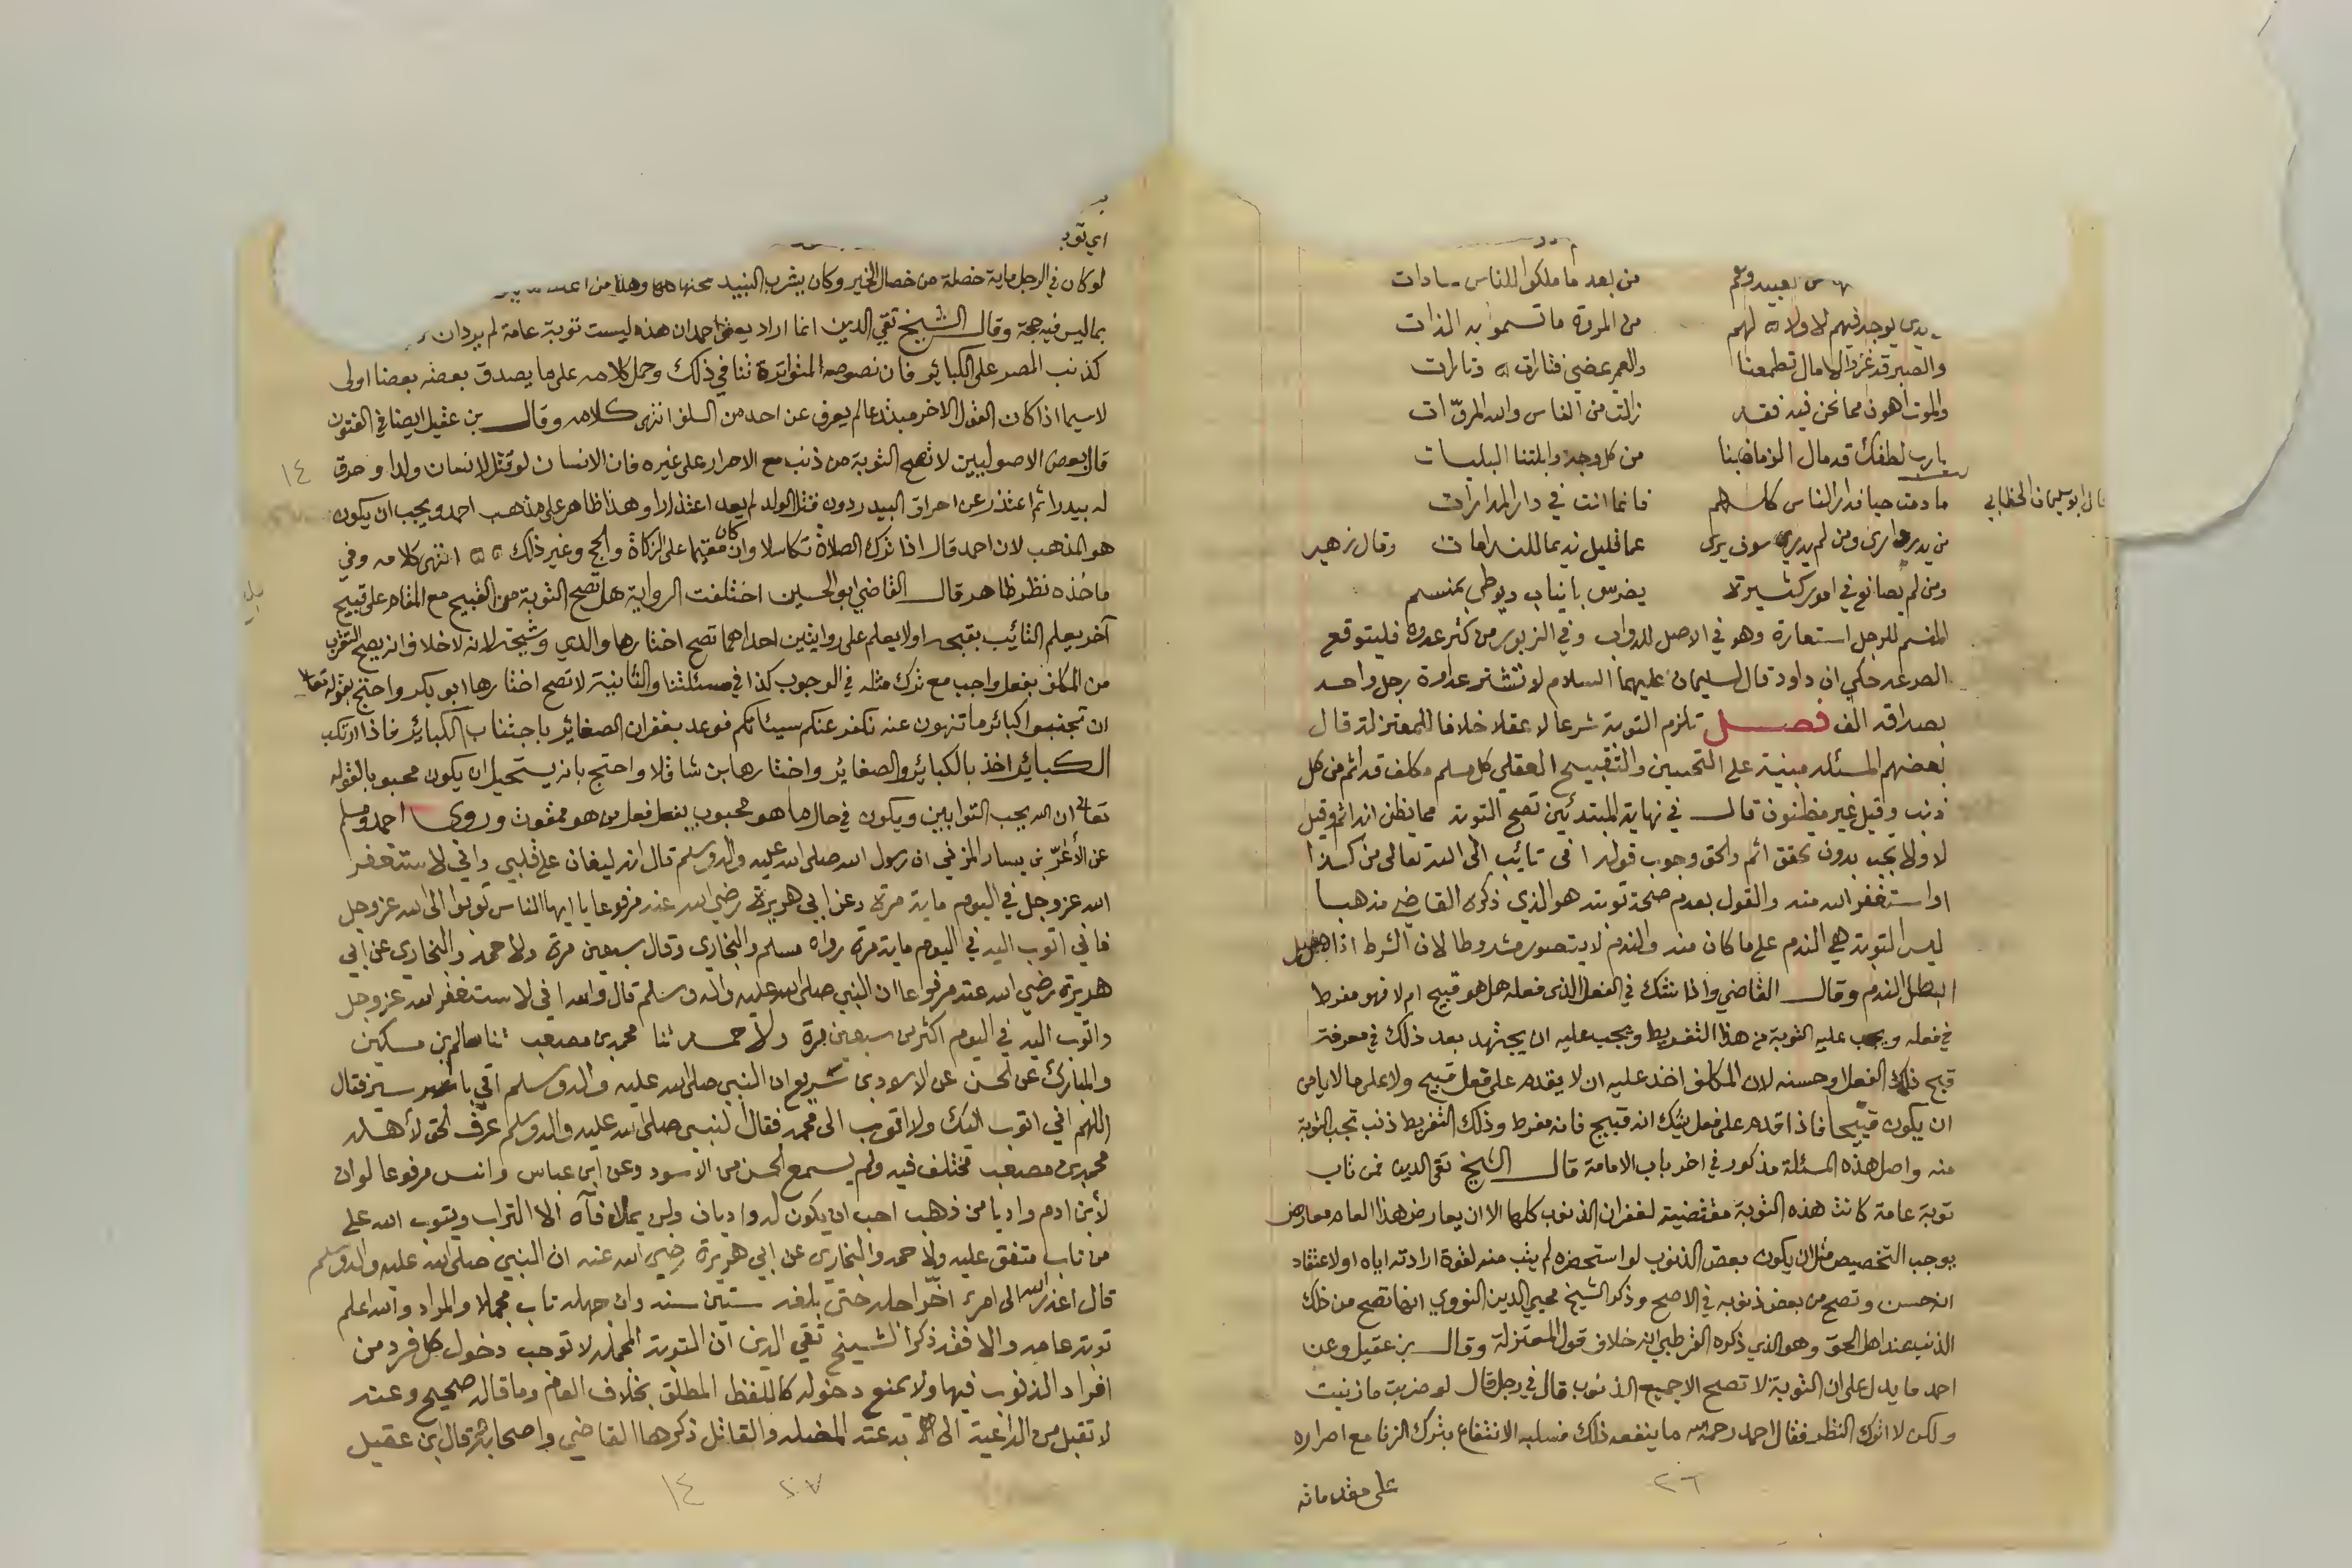 من بعد ما ملكوا للناس سادات
يوجد فيهم لا ولاة لهم من المروة ما تسموا به الذات
والصبر قد عز والامال تطمعنا والعمر يمضي فتارات وتارات
والموت اهون مما نحن فيه فقد زالت من الناس والله المروّات
يا رب لطفك قد مال الزمان بنا من كل وجه وابلتنا البليات
قال ابو سليمان الخطابي
ما دمت حيا فدار الناس كلهم فانما انت في دار المدارات
من يدر دارى ومن لم يدري سوف يرى عما قليل نديما للندامات وقال زهير
ومن لم يصانع في امور كثيرة يضرس بانياب ويوطى بمنسم
المنسم للرجل استعارة وهو في الاصل للدواب وفي الزبور من كثر عدوه فليتوقع
الصرعه حكي ان داود قال لسليمان عليهما السلام لا تشتر عداوة رجل واحد
بصداقه الف فصل تلزم التوبة شرعا لا عقلا خلافا للمعتزلة قال
بعضهم المسئله مبنية على التحسين والتقبيح العقلي كل مسلم مكلف قد اثم من كل
ذنب وقيل غير مظنون قال في نهاية المبتدئين تصح التوبة مما يظن انه اثم وقيل
لا ولا تجب بدون تحقق اثم والحق وجوب قوله اني تائب الى الله تعالى من كذا
او استغفر الله منه والقول بعدم صحة توبته هو الذي ذكره القاضي مذهبا
ليس التوبة هي الندم على ما كان منه والندم لا يتصور مشروطا لان الشرط اذا حصل
ابطل الندم وقال القاضي واذا شك في الفعل الذي فعله هل هو قبيح ام لا فهو مفرط
في فعله ويجب عليه التوبة من هذا التفريط ويجب عليه ان يجتهد بعد ذلك في معرفة
قبح ذلك الفعل او حسنه لان المكلف اخذ عليه ان لا يقدم على فعل قبيح ولا على ما لا يامن
ان يكون قبيحا فاذا اقدم على فعل يشك انه قبيح فانه مفرط وذلك التفريط ذنب تجب التوبة
منه واصل هذه المسئلة مذكور في اخر باب الامامة قال الشيخ تقي الدين فمن تاب
توبة عامة كانت هذه التوبة مقتضية لغفران الذنوب كلها الا ان يعارض هذا العام معارض
يوجب التخصيص مثل ان يكون بعض الذنوب لو استحضره لم يتب منه لقوة ارادته اياه او لاعتقاد
انه حسن وتصح من بعض ذنوبه في الاصح وذكر الشيخ محيي الدين النووي انها تصح من ذلك
الذنب عند اهل الحق وهو الذي ذكره القرطبي انه خلاف قول المعتزلة وقال بن عقيل وعن
احمد ما يدل على ان التوبة لا تصح الا جميع الذنوب قال في رجل قال لو ضربت ما زنيت
ولكن لا اترك النظر فقال احمد رحمه الله ما ينفعه ذلك فسلبه الانتفاع بترك الزنا مع اصراره
على مقدماته
٢٦
اي توبة
لو كان في الرجل ماية خصلة من خصال الخير وكان يشرب النبيذ محتها كلها وهذا من
بما ليس فيه حجة وقال الشيخ تقي الدين انما اراد يعني احمد ان هذه ليست توبة عامة لم يرد ان
كذنب المصر على الكبائر فان نصوصه المتواترة تنافي ذلك وحمل كلامه على ما يصدق بعضه بعضا اولى
لا سيما اذا كان القول الاخر مبتدعا لم يعرف عن احد من السلف انتهى كلامه وقال بن عقيل ايضا في الفنون
قال بعض الاصوليين لا تصح التوبة من ذنب مع الاصرار على غيره فان الانسان لو قتل لانسان ولدا وحرق
له بيدرا ثم اعتذر عن احراق البيدر دون قتل الولد لم يعد اعتذارا وهذا ظاهر على مذهب احمد ويجب ان يكون
هو المذهب لان احمد قال اذا ترك الصلاة تكاسلا وان كان مقيما على الزكاة والحج وغير ذلك انتهى كلامه وفي
ماخذه نظر ظاهر قال القاضي ابو الحسين اختلفت الرواية هل تصح التوبة من القبيح مع المقام على قبيح
آخر يعلم التائب بقبحه اولا يعلم على روايتين احداهما تصح اختارها والدي وشيخه لانه لا خلاف انه يصح التقرب
من المكلف بفعل واجب مع ترك مثله في الوجوب كذا في مسئلتنا والثانية لا تصح اختارها ابو بكر واحتج بقوله تعالى
ان تجتنبوا كبائر ما تنهون عنه نكفر عنكم سيئاتكم فوعد بغفران الصغائر باجتناب الكبائر فاذا ارتكب
الكبائر اخذ بالكبائر والصغائر واختارها بن شاقلا واحتج بانه يستحيل ان يكون محبوبا لقوله
تعالى ان الله يحب التوابين ويكون في حال ما هو محبوب يفعل فعل من هو ممقوت وروى احمد ومسلم
عن الأغرّ بن يسار المزني ان رسول الله صلى الله عليه واله وسلم قال انه ليغان على قلبي واني لاستغفر
الله عز وجل في اليوم ماية مرة وعن ابي هريرة رضي الله عنه مرفوعا يا ايها الناس توبوا الى الله عز وجل
فاني اتوب اليه في اليوم ماية مرة رواه مسلم والبخاري وقال سبعين مرة ولاحمد والبخاري عن ابي
هريرة رضي الله عنه مرفوعا ان النبي صلى الله عليه واله وسلم قال والله اني لاستغفر الله عز وجل
واتوب اليه في اليوم اكثر من سبعين مرة ولاحمد ثنا محمد بن مصعب ثنا سالم بن مسكين
والمبارك عن الحسن عن الاسود بن سريع ان النبي صلى الله عليه واله وسلم اتي باسير فقال
اللهم اني اتوب اليك ولا اتوب الى محمد فقال النبي صلى الله عليه واله وسلم عرف الحق لأهله
محمد بن مصعب مختلف فيه ولم يسمع الحسن من الاسود وعن ابن عباس وانس مرفوعا لو ان
لأبن ادم واديا من ذهب احب ان يكون له واديان ولن يملأ فآه الا التراب ويتوب الله على
من تاب متفق عليه ولاحمد والبخاري عن ابي هريرة رضي الله عنه ان النبي صلى الله عليه واله وسلم
قال اعذر الله الى امرء اخّر اجله حتى بلغه ستين سنه وان جهله تاب مجملا والمراد والله اعلم
توبة عامه والا فقد ذكر الشيخ تقي الدين ان التوبة المجمله لا توجب دخول كل فرد من
افراد الذنوب فيها ولا يمنع دخوله كاللفظ المطلق بخلاف العام وما قاله صحيح وعنه
لا تقبل من الداعية الى بدعته المضله والقاتل ذكرها القاضي واصحابه قال ابن عقيل
١٤
٢٧
١٤